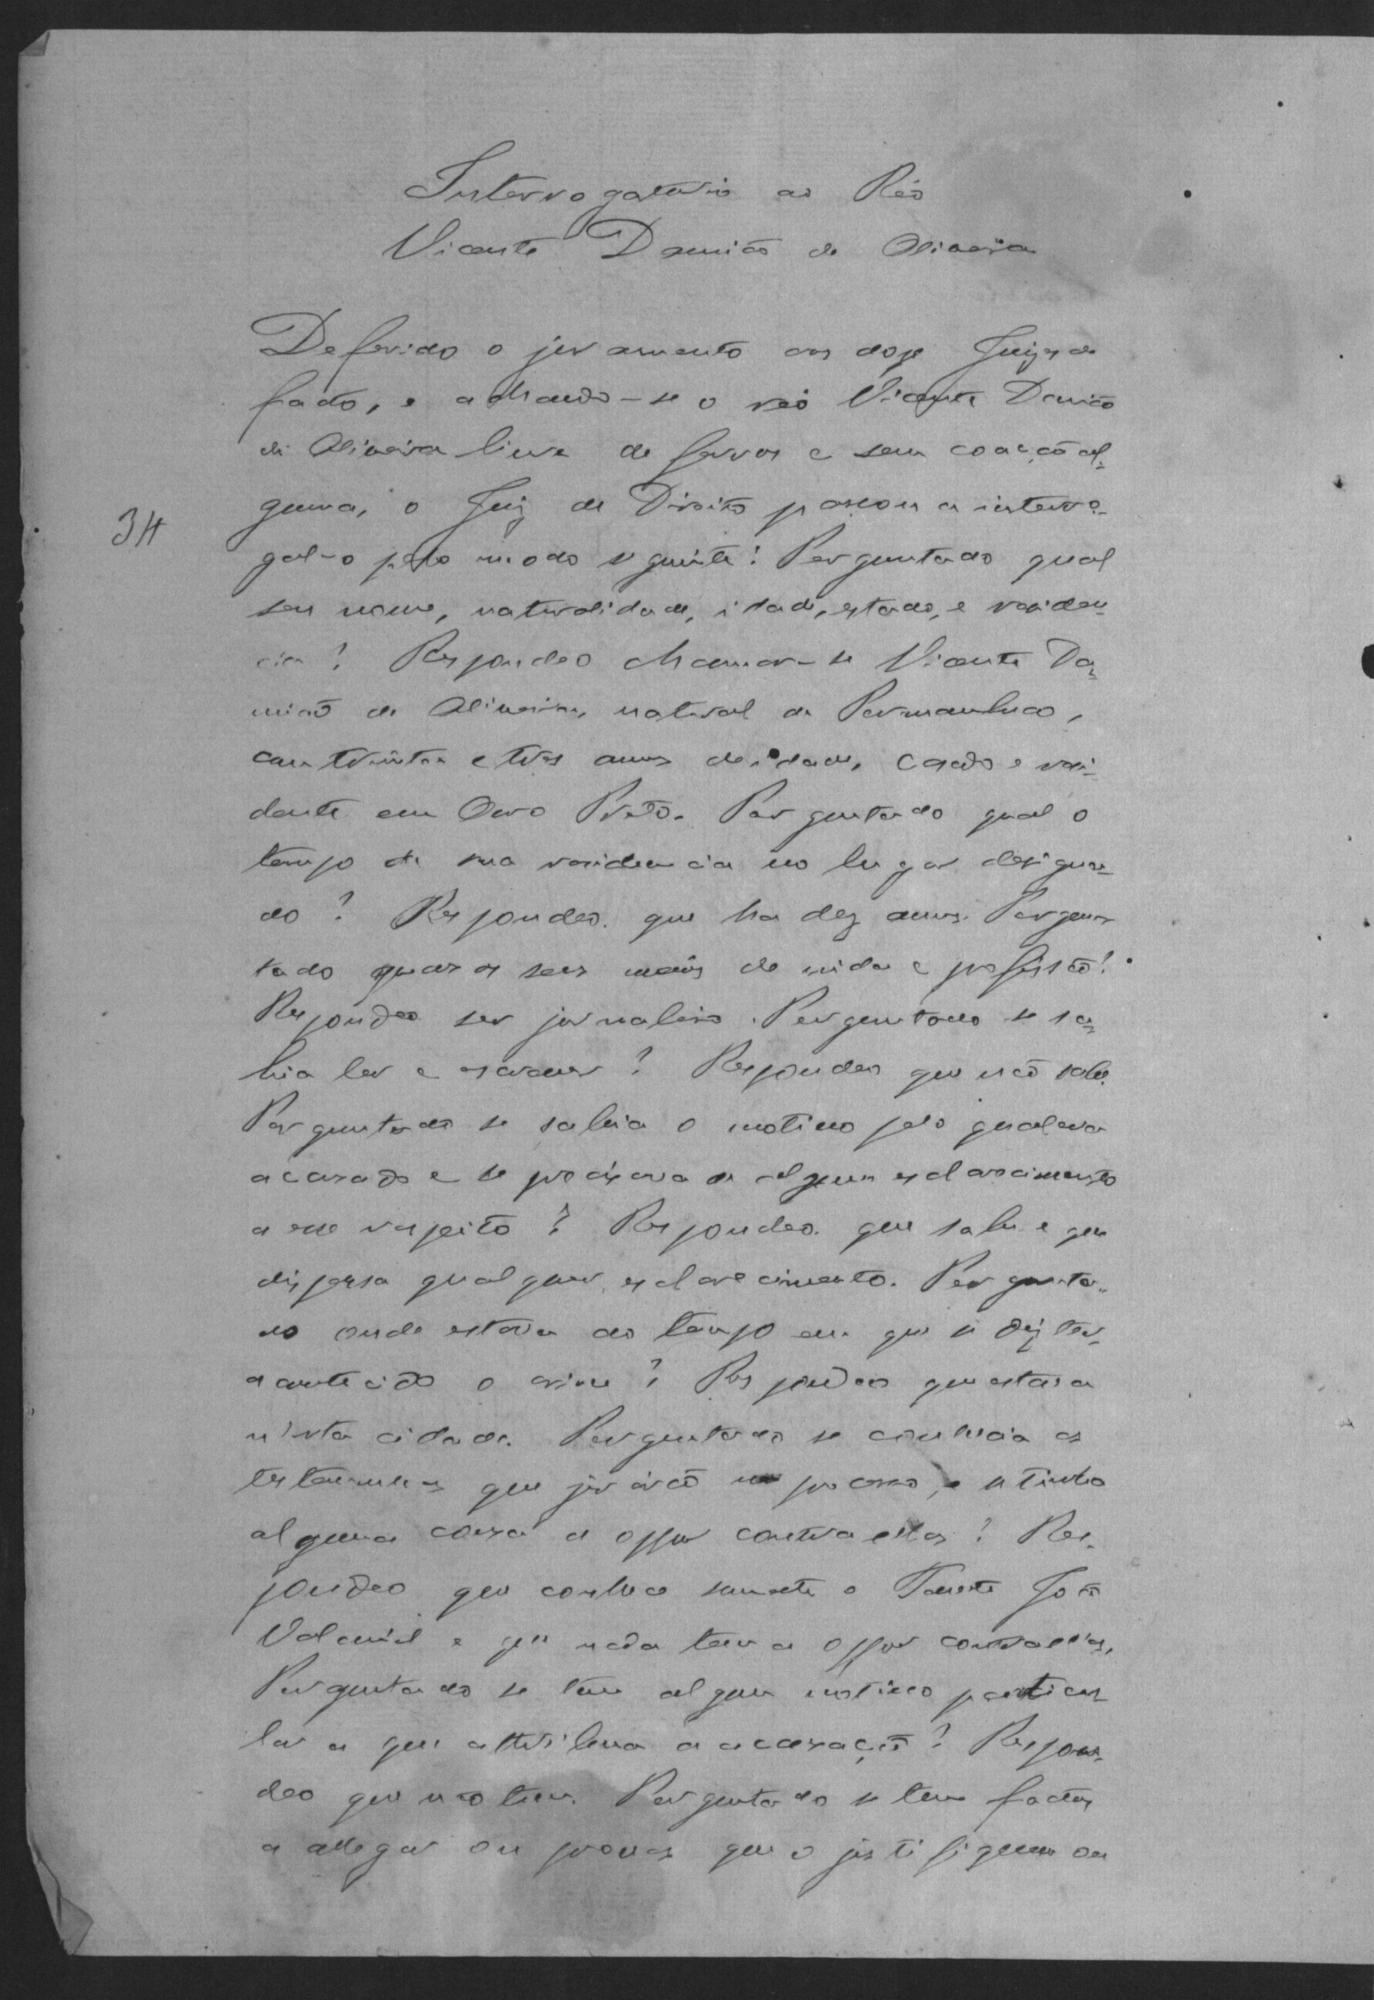 Interrogatorio ao Réo
Vicente Damião de Oliveira
Deferido o juramento aos doze Juizes de
facto, e achando-se o reo Vicente Damião
de Oliveira livre de ferros e sem coacção al-
guma, o Juiz de Direito passou a interro-
gal-o pelo modo seguinte: Perguntado qual
seu nome, naturalidade, idade, estado, e residen-
cia? Respondeo chamar-se Vicente Da-
mião de Oliveira, natural de Pernambuco,
com trinta e tres annos de idade, casado e resi-
dente em Ouro Preto. Perguntado qual o
tempo de sua residencia no lugar designa-
do? Respondeo que ha dez annos. Pergun-
tado quaes os seus meios de vida e profissão?
Respondeo ser jornaleiro. Perguntado se sa-
bia ler e escrever? Respondeo que não sabe.
Perguntado se sabia o motivo pelo qual era
accusado e se precisava de algum esclarecimento
a esse respeito? Respondeo que sabe e que
dispensa qualquer esclarecimento. Pergunta-
do onde estava ao tempo em que se diz ter
acontecido o crime? Respondeo que estava
n'esta cidade. Perguntado se conhecia as
testemunhas que jurárão no processo, e se tinha
alguma cousa a oppor contra ellas? Res-
pondeo que conhece somente o Tenente João
e que nada tem a oppor contra ellas.
Perguntado se tem algum motivo particu-
lar a que attribua a accusação? Respon-
deo que não tem. Perguntado se tem factos
a allegar ou provas que o justifiquem ou
34